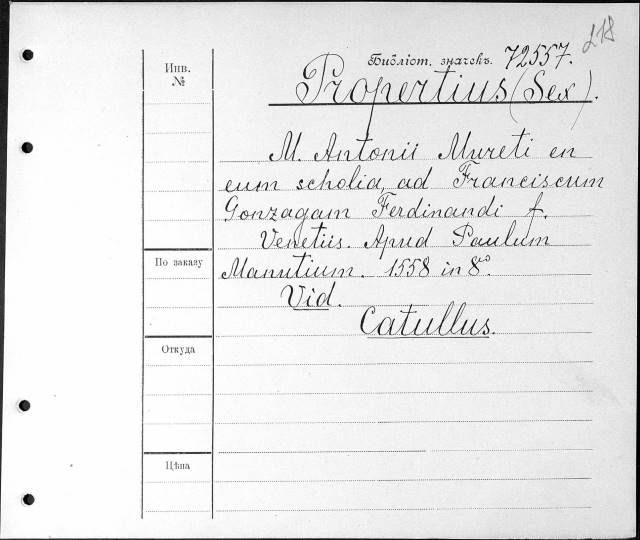 218
Библіот. значекъ. 72557.
Инв.
№
Propertius (Sex).
M. Antonii Mureti en
eum scholia, ad Franciscum
Gonzagam Ferdinandi f.
Venetiis. Apud Paulum
По заказу
Manutium. 1558 in 8º.
Vid.
Catullus.
Откуда
Цѣна